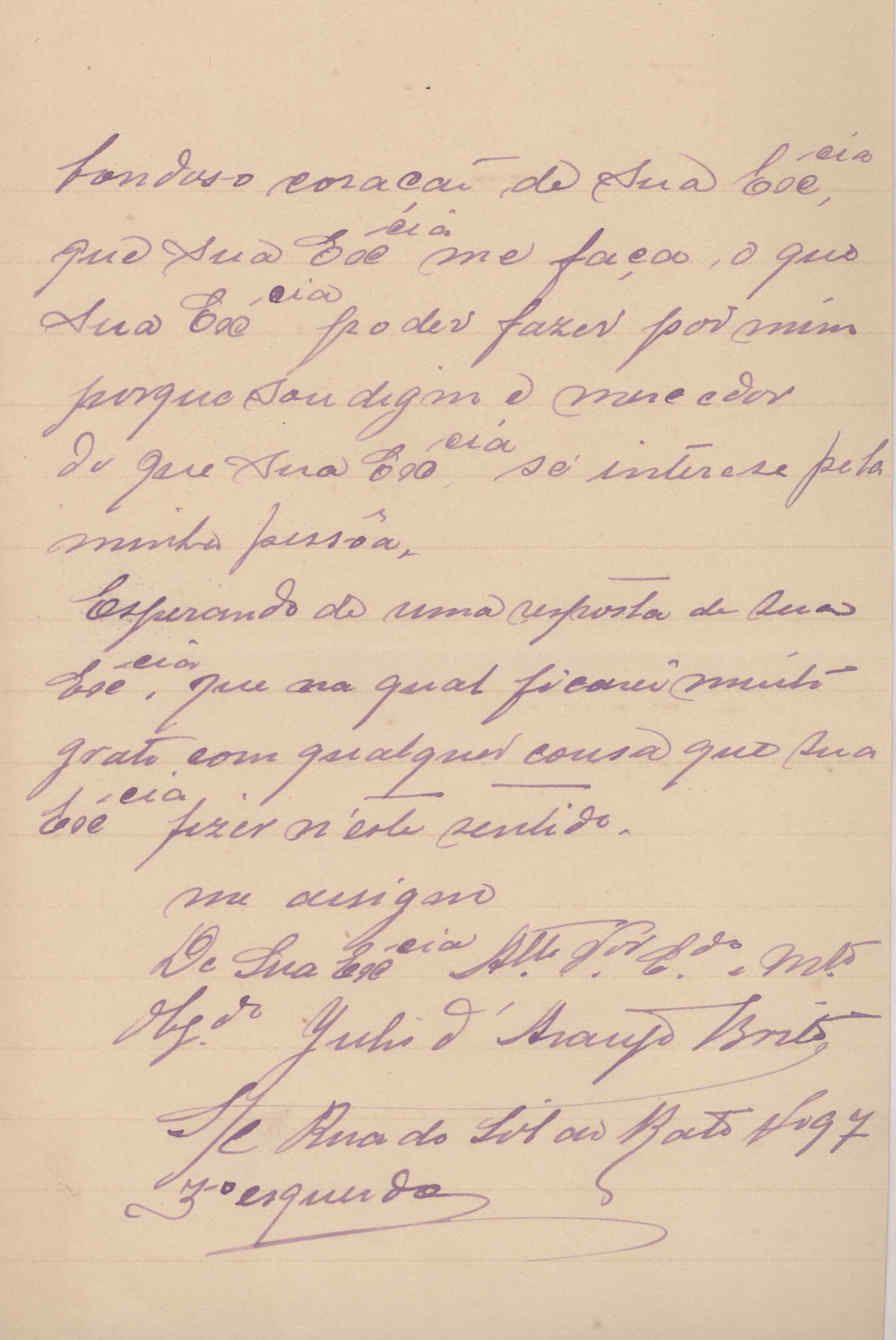 bondoso coração de sua Exc.cia,
que sua Exc.cia me faça, o que
sua Exc.cia poder fazer por mim
porque sou digm e merecedor
de que sua Exc.cia se interese pela
minha pessôa,
Esperando de uma resposta de sua
Exc.cia, que na qual ficarei muito
grato com qualquer cousa que sua
Exc.cia fizer n'este sentido.
me asigno
De Sua Exc.cia Att.to V.or C.do e M.to
Obg.do Julio d'Araujo Brito
S/C Rua do Sol ao Rato No 97
3o esquerdo